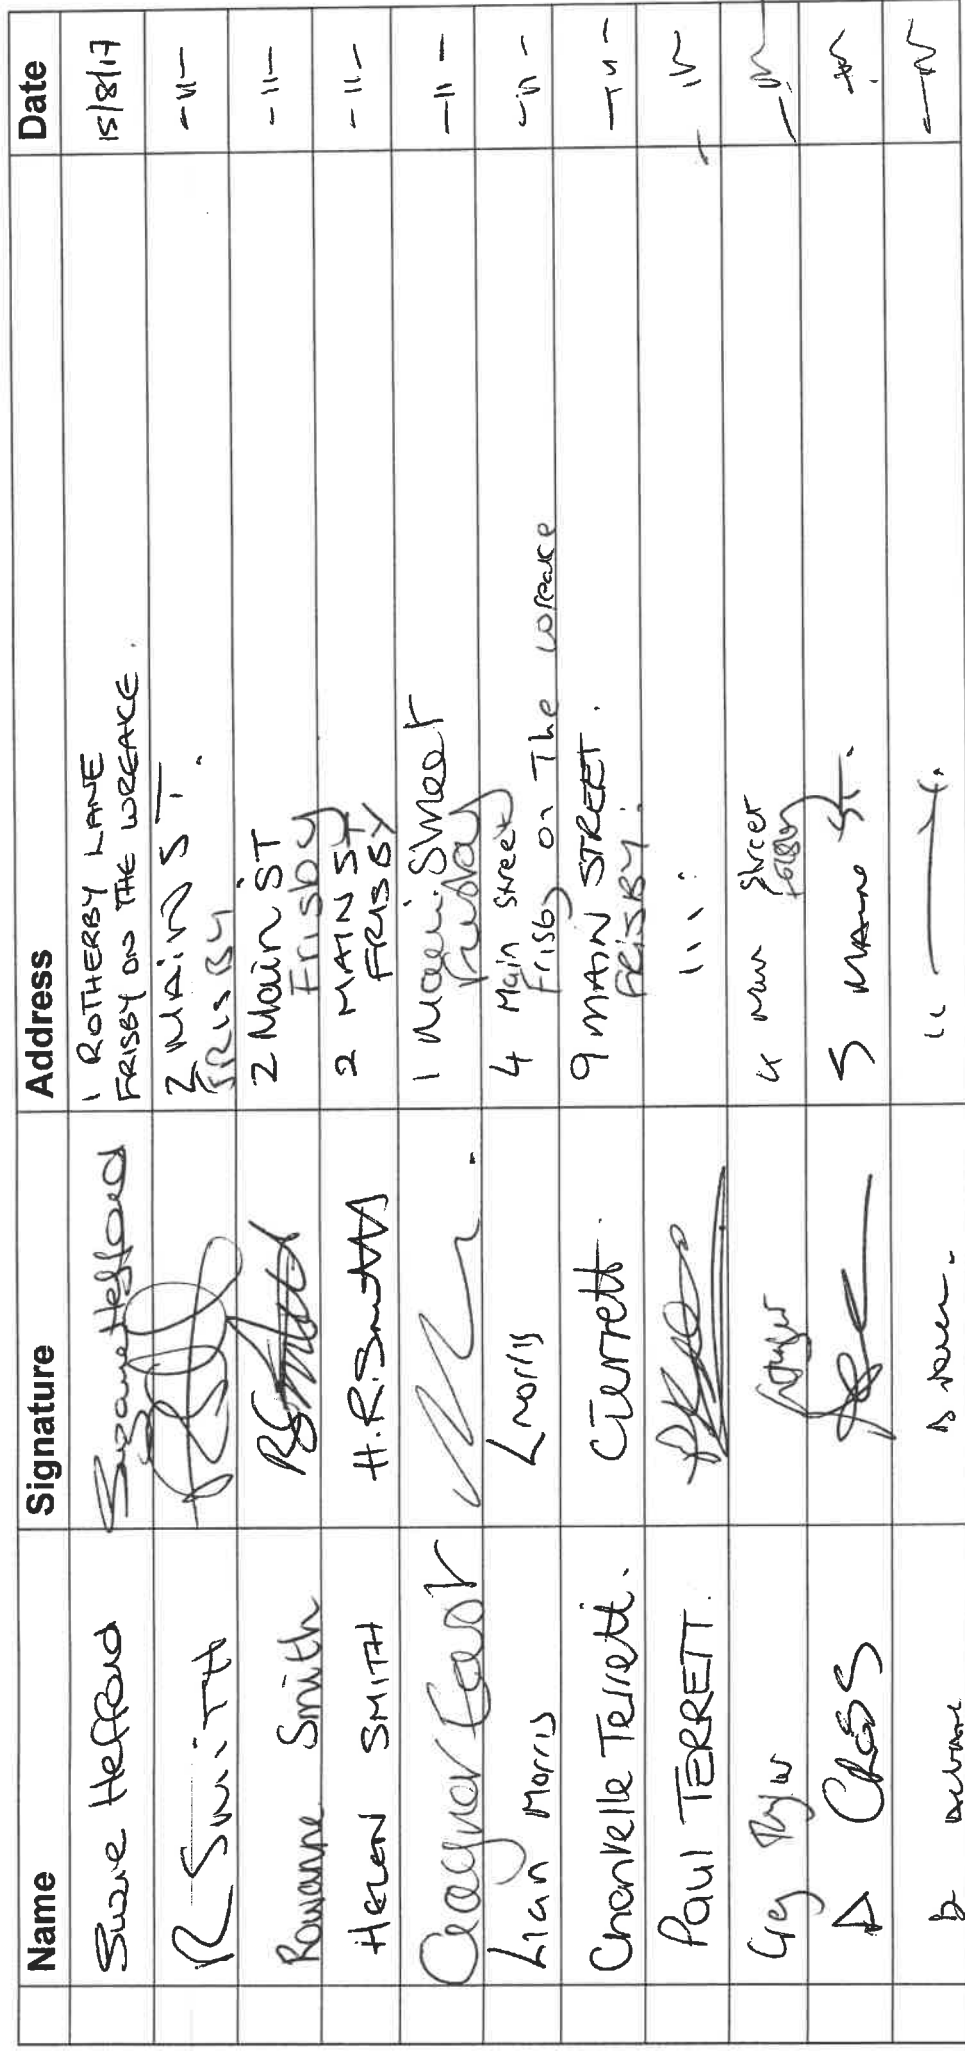 Name Signature Address Date
Suzie Hefford Suzanne Hefford 1 ROTHERBY LANE 15/8/17
FRISBY ON THE WREAKE.
R SMITH 2 MAIN ST. -11-
FRISBY
Rowanne Smith 2 Main ST -11-
Frisby
HELEN SMITH H.R.Smith 2 MAIN ST -11-
FRISBY
1 Main Street -11-
Frisby
Lian Morris Lmorris 4 Main Street -11-
Frisby on The wreake
Chantelle Terrett. CTerrett. 9 MAIN STREET. -11-
FRISBY.
Paul TERRETT. 111. - 11
Greg 4 Main Street
Frisby
D CROSS 5 ST.
D 11